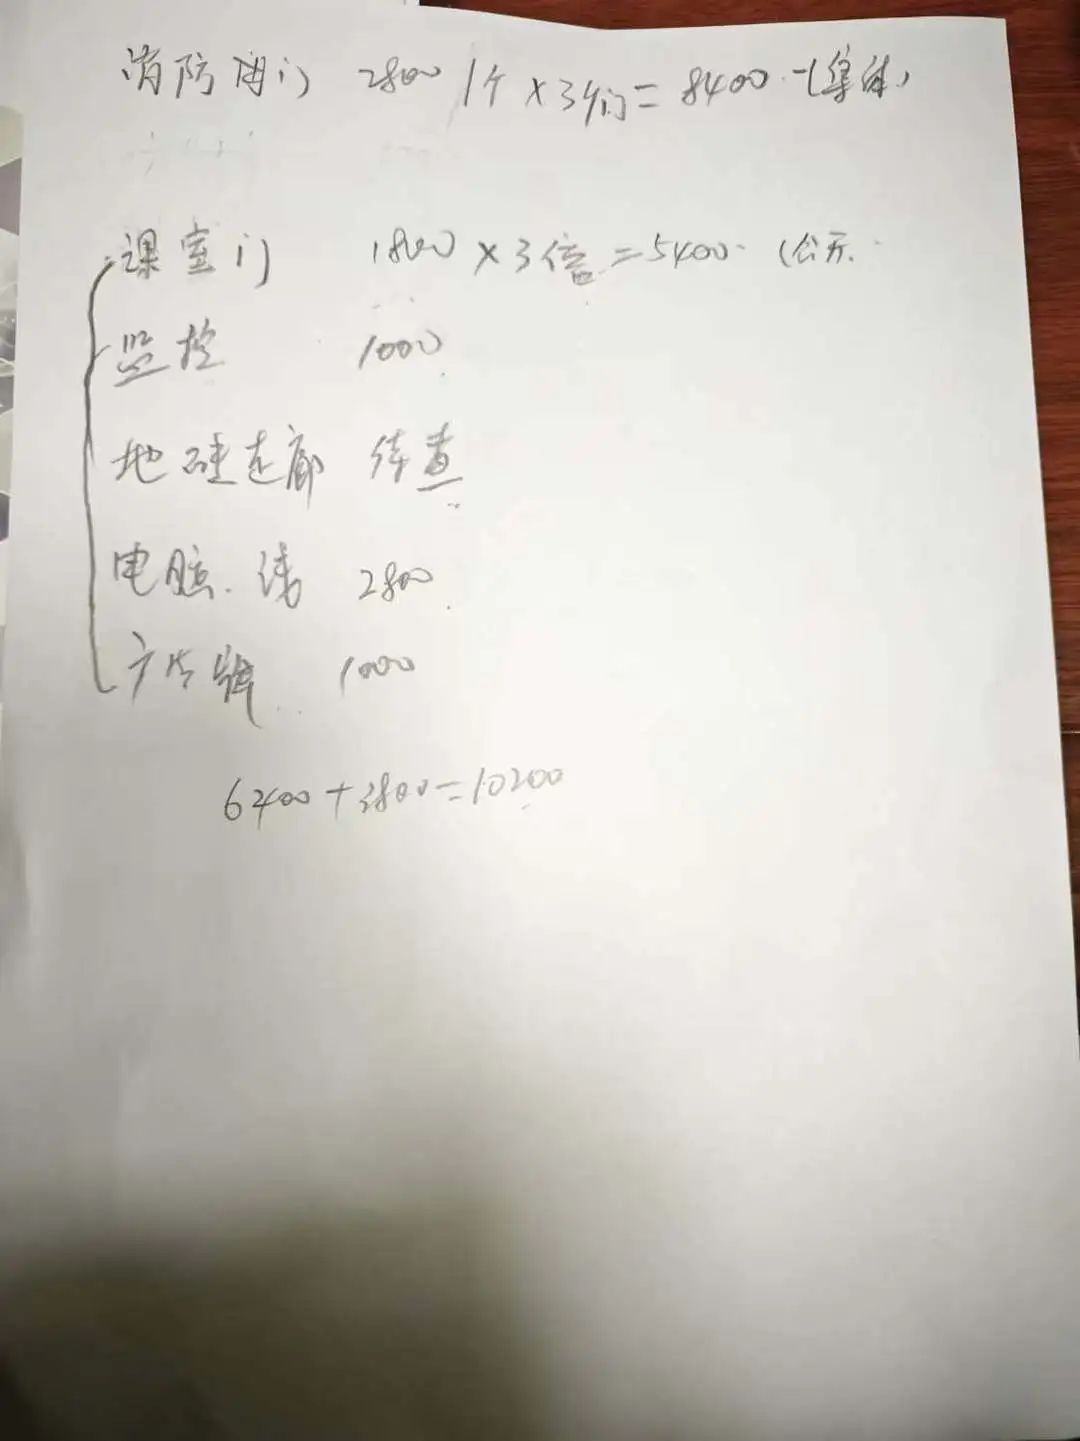 消防门 2800 1个 × 3 = 8400
课室门 1800 × 3倍 = 5400 (公
监控 1000
地 走廊 待查
电脑. 线 2800
广告牌 1000
6400 + 3800 = 10200